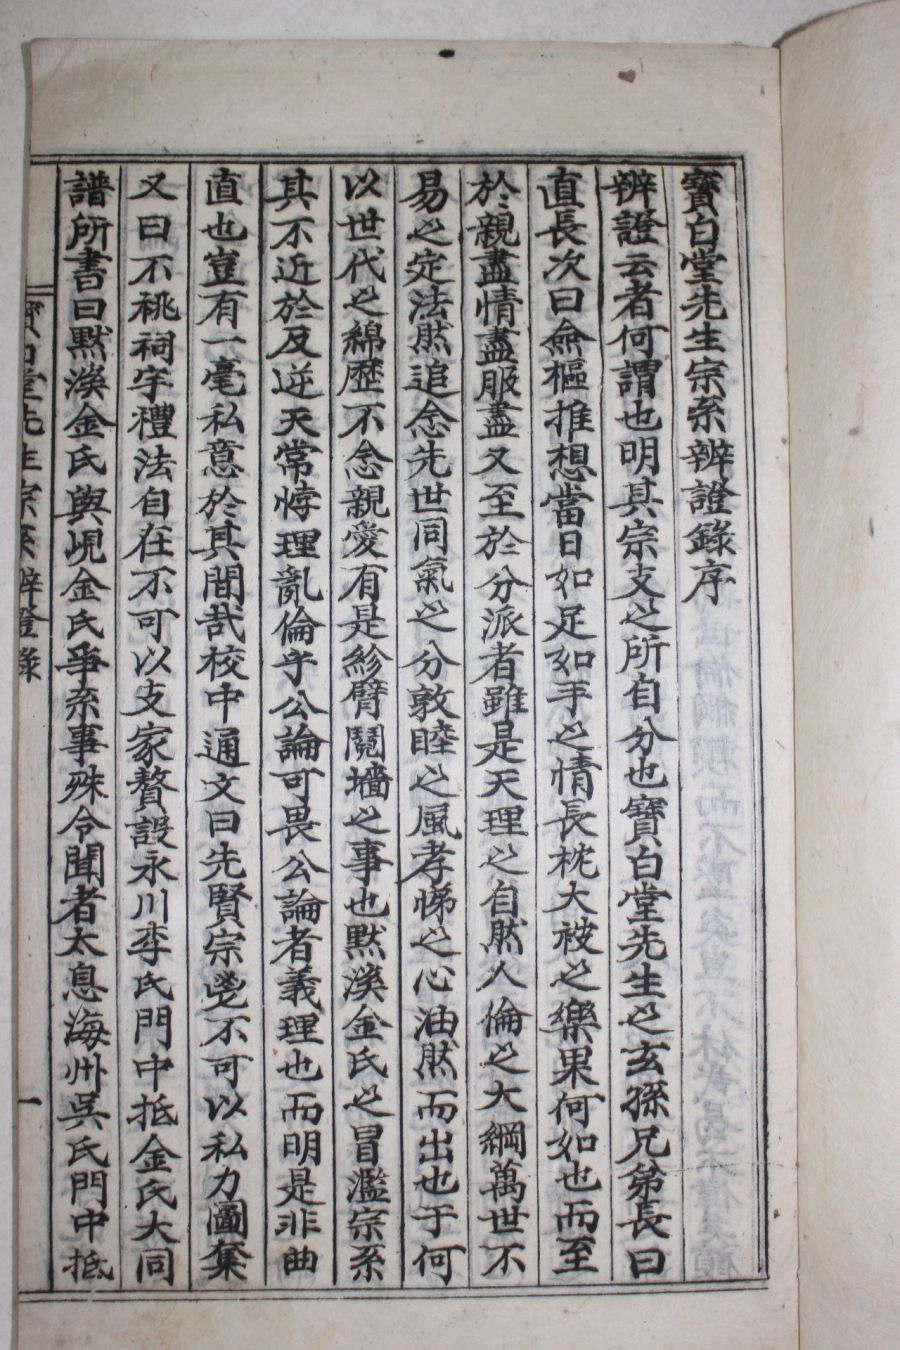 寶白堂先生宗系辨證錄序
辨證云者何謂也明其宗支之所自分也寶白堂先生之玄孫兄弟長曰
直長次曰僉樞推想當日如足如手之情長枕大被之樂果何如也而至
於親盡情盡服盡又至於分派者雖是天理之自然人倫之大綱萬世不
易之定法然追念先世同氣之分敦睦之風孝悌之心油然而出也于何
以世代之綿歷不念親愛有是紾臂鬩墻之事也默溪金氏之冒濫宗系
其不近於及逆天常悖理亂倫乎公論可畏公論者義理也而明是非曲
直也豈有一毫私意於其間哉校中通文曰先賢宗嗣不可以私力圖奪
又曰不祧祠宇禮法自在不可以支家贅設永川李氏門中抵金氏大同
譜所書曰默溪金氏與峴金氏爭系事殊令聞者太息海州吳氏門中抵
寶白堂先生宗系辨證錄
一